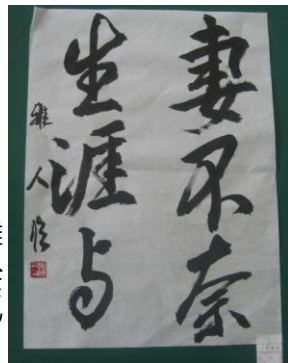 妻不奈
生涯与
雅人临